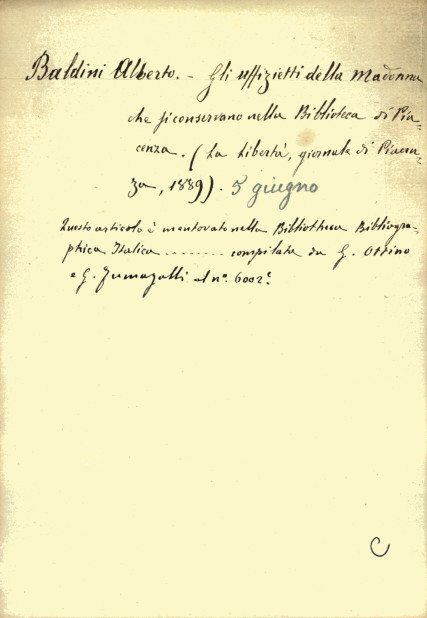 Baldini Alberto. – Gli uffizietti della Madonna
che si conservano nella Biblioteca di Pia-
cenza. (La Libertà, giornale di Piacen-
za, 1889). 5 giugno
Questo articolo è mentovato nella Bibliotheca Bibliogra-
phica Italica ......... compilata da G. Ottino
e G. Fumagalli al n.º 6002.
C